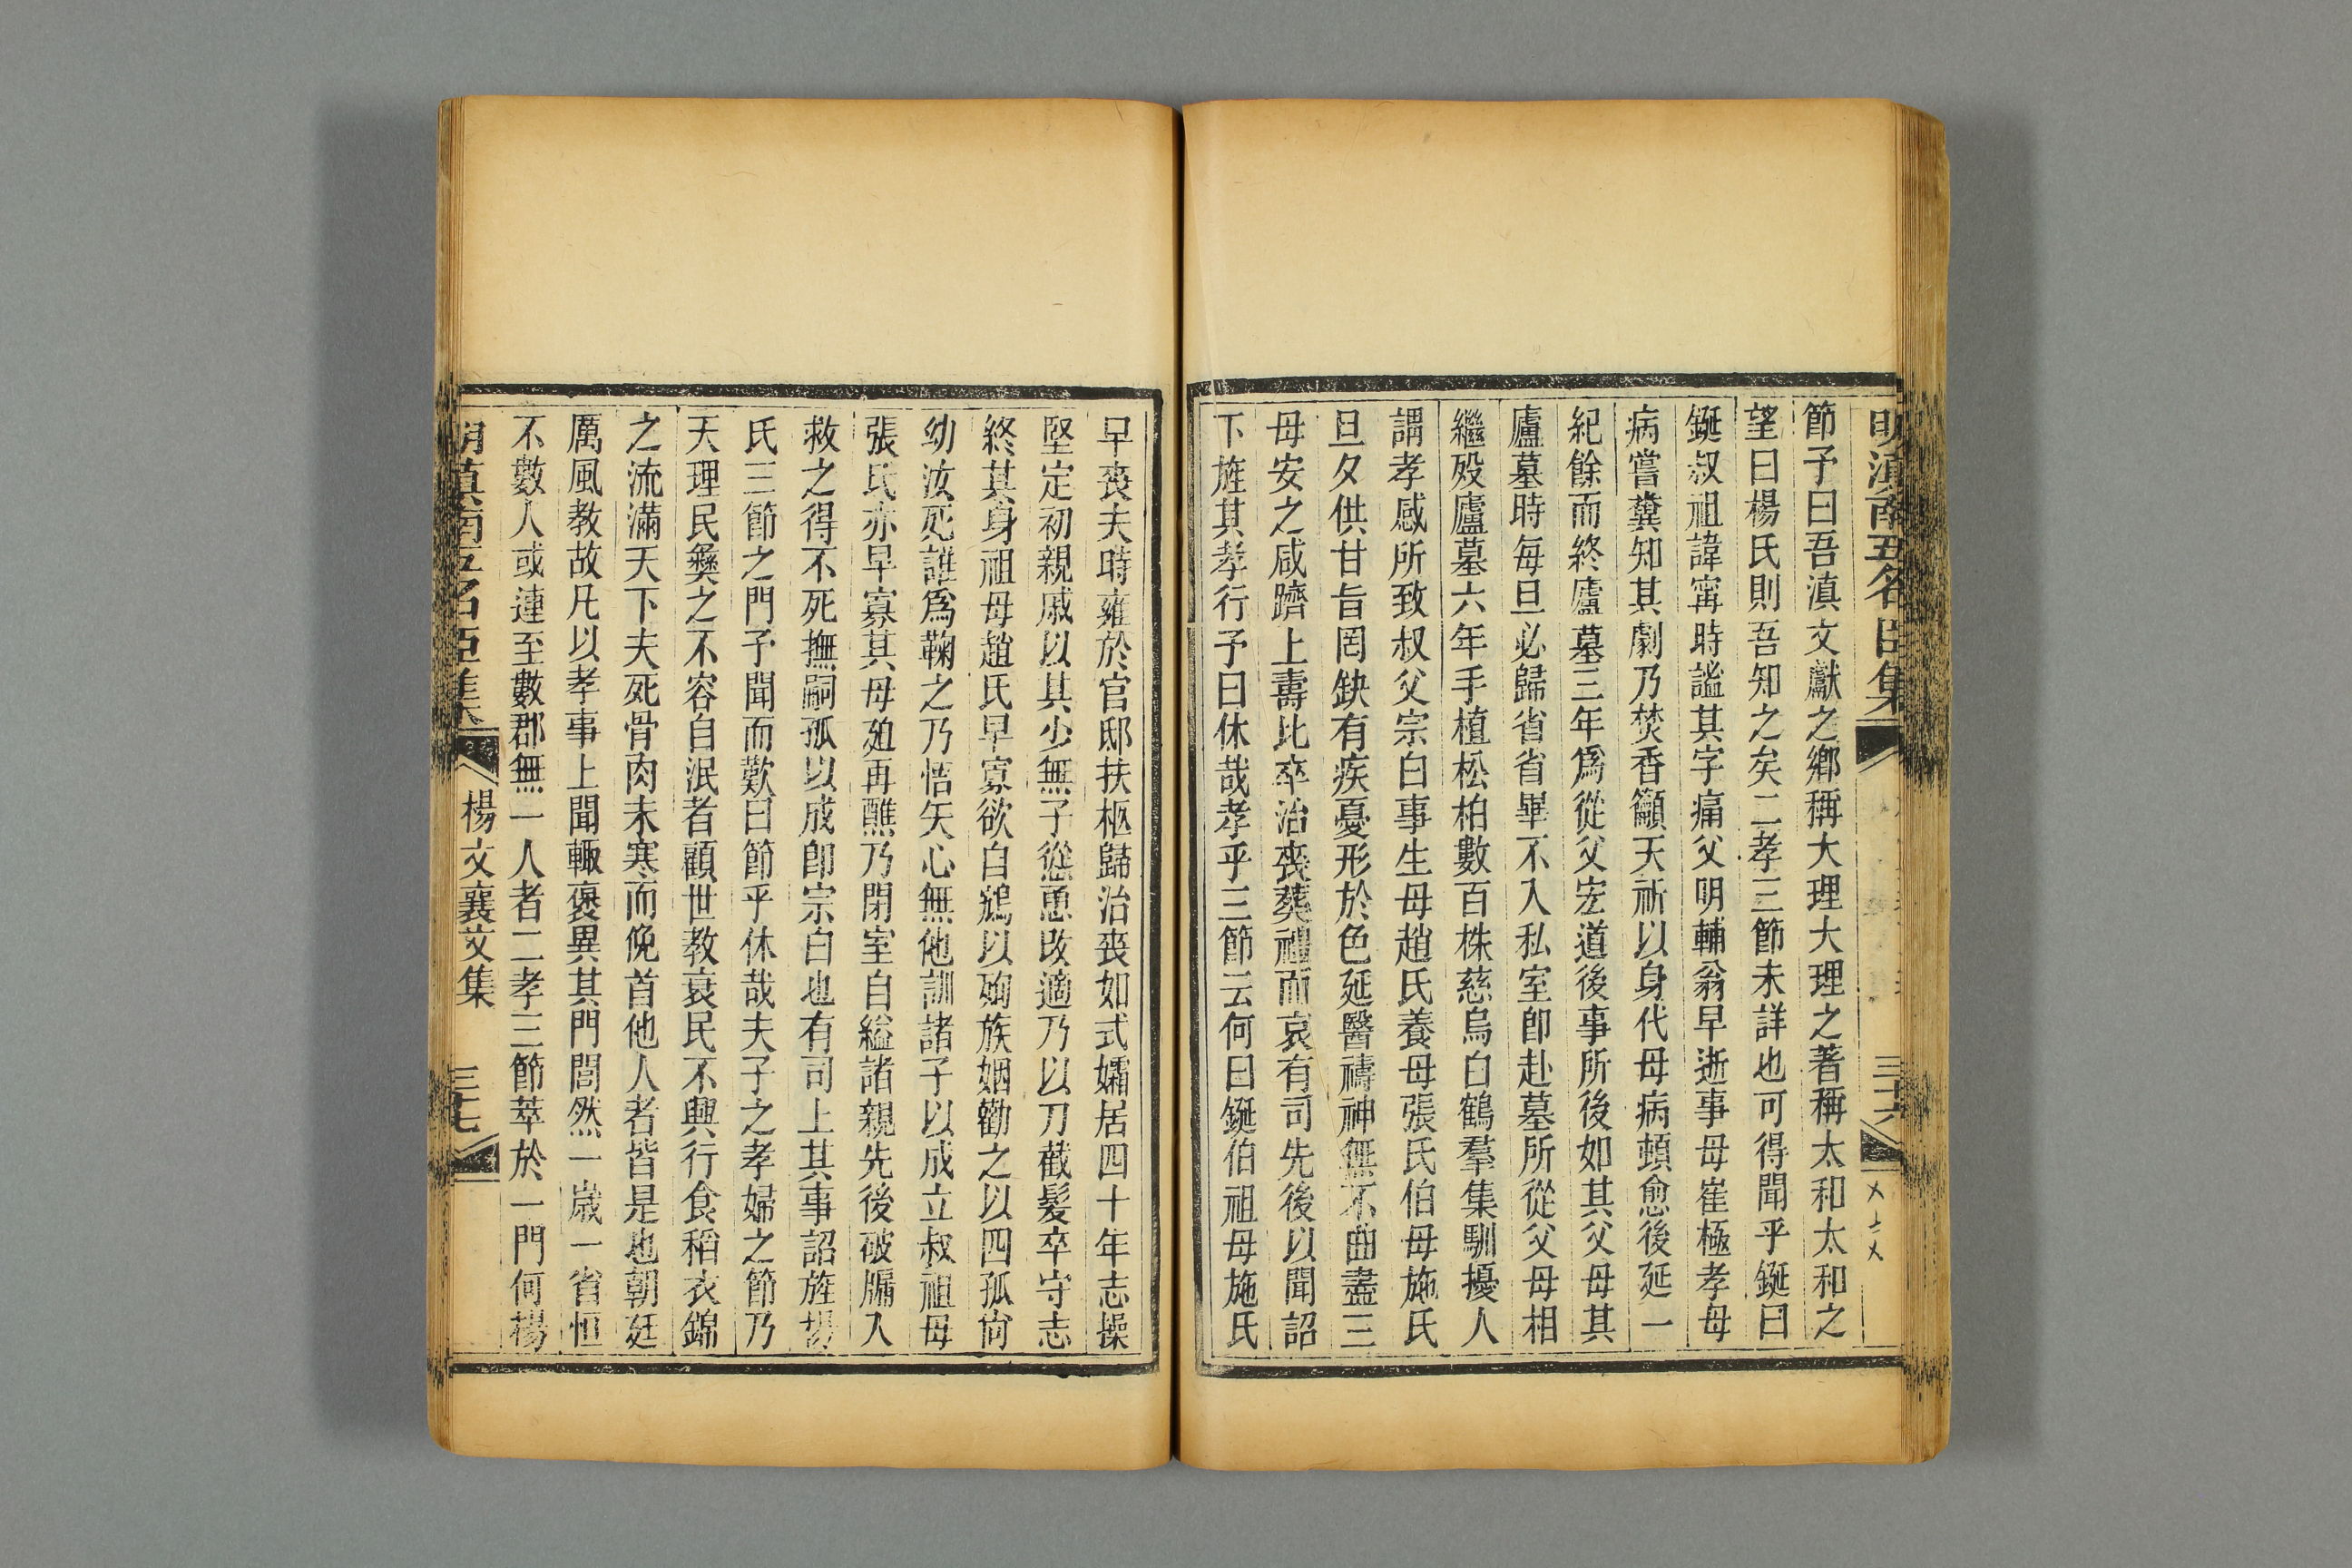 明滇南五名臣集
三十六
節予曰吾滇文獻之鄉稱大理大理之著稱太和太和之
望曰楊氏則吾知之矣二孝三節未詳也可得聞乎鋋曰
鋋叔祖諱甯時謐其字痛父明輔翁早逝事母崔極孝母
病嘗糞知其劇乃焚香籲天祈以身代母病頓愈後延一
紀餘而終廬墓三年爲從父宏道後事所後如其父母其
廬墓時每旦必歸省省畢不入私室卽赴墓所從父母相
繼殁廬墓六年手植松柏數百株慈烏白鶴羣集馴擾人
謂孝感所致叔父宗白事生母趙氏養母張氏伯母施氏
旦夕供甘旨罔缺有疾憂形於色延醫禱神無不曲盡三
母安之咸躋上壽比卒治喪葬禮而哀有司先後以聞詔
下旌其孝行予曰休哉孝乎三節云何曰鋋伯祖母施氏
早喪夫時雍於官邸扶柩歸治喪如式孀居四十年志操
堅定初親戚以其少無子慫恿改適乃以刀截髮卒守志
終其身祖母趙氏早寡欲自縊以殉族姻勸之以四孤尙
幼汝死誰爲鞠之乃悟矢心無他訓諸子以成立叔祖母
張氏亦早寡其母廹再醮乃閉室自縊諸親先後破牖入
救之得不死撫嗣孤以成卽宗白也有司上其事詔旌楊
氏三節之門予聞而歎曰節乎休哉夫子之孝婦之節乃
天理民彝之不容自泯者顧世教衰民不興行食稻衣錦
之流滿天下夫死骨肉未寒而俛首他人者皆是也朝廷
厲風教故凡以孝事上聞輒褒異其門閭然一歲一省恒
不數人或連至數郡無一人者二孝三節萃於一門何楊
明滇南五名臣集
楊文襄文集
三十七